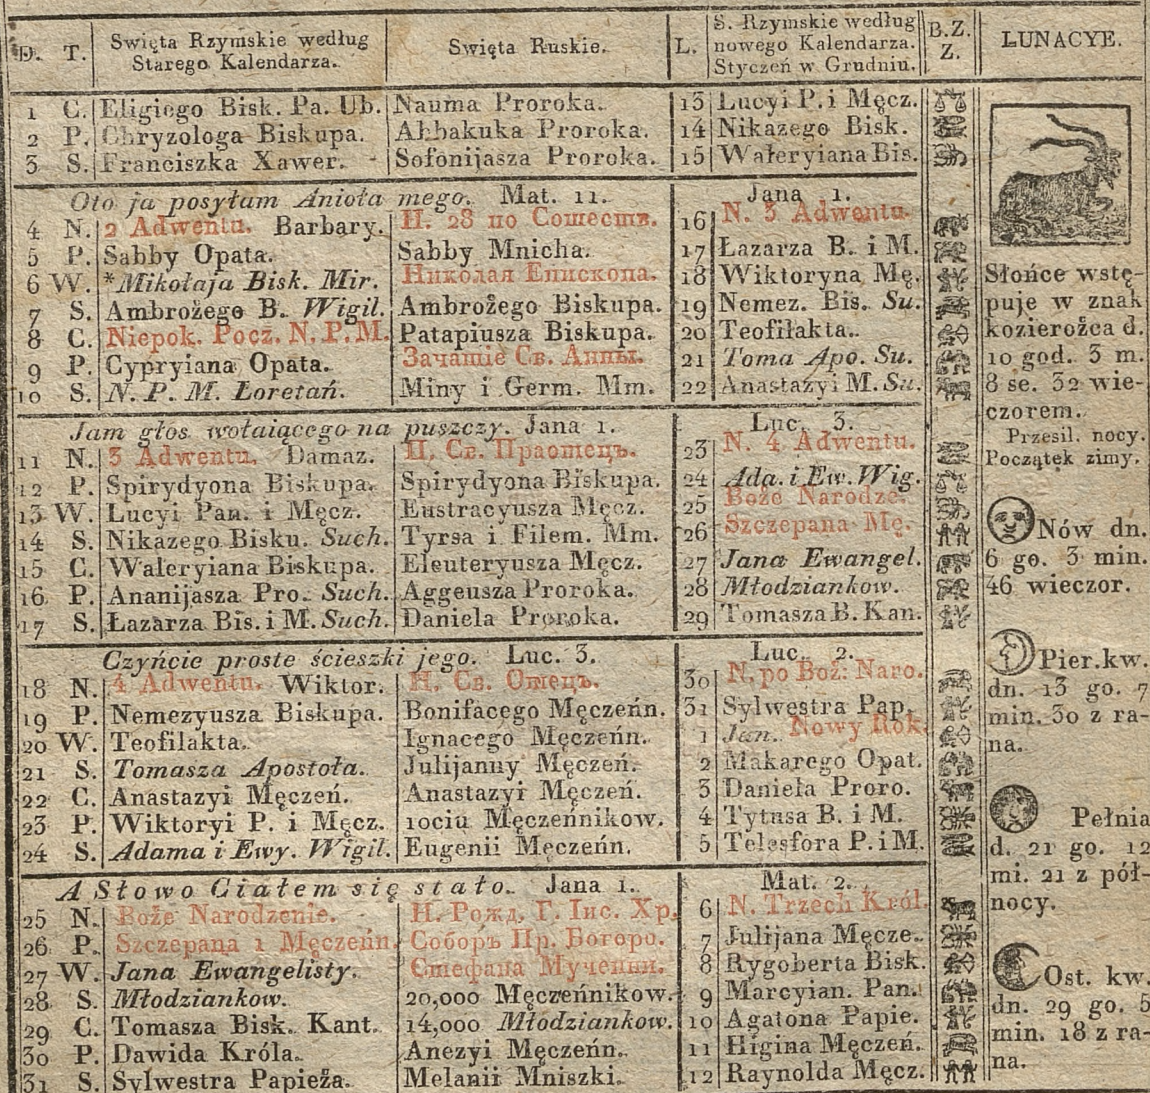 D. T. Swięta Rzymskie według Starego Kalendarza. Swięta Ruskie. L. S. Rzymskie według nowego Kalendarza. Styczeń w Grudniu. B.Z. Z. LUNACYE.
1 C. Eligiego Bisk. Pa. Ub. Nauma Proroka. 13 Lucyi P. i Męcz.
2 P. Chryzologa Biskupa. Abbakuka Proroka. 14 Nikazego Bisk.
3 S. Franciszka Xawer. Sofonijasza Proroka. 15 Waleryiana Bis.
Oto ja posyłam Anioła mego. Mat. 11. Jana 1.
4 N. 2 Adwentu. Barbary. Н. 28 по Сошеств. 16 N. 3 Adwentu.
5 P. Sabby Opata. Sabby Mnicha. 17 Łazarza B. i M.
6 W. *Mikołaja Bisk. Mir. Николая Епископа. 18 Wiktoryna Mę.
7 S. Ambrożego B. Wigil. Ambrożego Biskupa. 19 Nemez. Bis. Su.
8 C. Niepok. Pocż. N. P. M. Patapiusza Biskupa. 20 Teofiłakta.
9 P. Cypryiana Opata. Зачатіе Св. Анны. 21 Toma Apo. Su.
10 S. N. P. M. Loretań. Miny i Germ. Mm. 22 Anastazyi M. Su.
Jam głos wołaiącego na puszczy. Jana 1. Luc. 3.
11 N. 3 Adwentu. Damaz. Н. Св. Праотецъ. 23 N. 4 Adwentu.
12 P. Spirydyona Biskupa. Spirydyona Biskupa. 24 Ada. i Ew. Wig.
13 W. Lucyi Pan. i Męcz. Eustracyusza Męcz. 25 Boże Narodze.
14 S. Nikazego Bisku. Such. Tyrsa i Filem. Mm. 26 Szczepana Mę.
15 C. Waleryiana Biskupa. Eleuteryusza Męcz. 27 Jana Ewangel.
16 P. Ananijasza Pro. Such. Aggeusza Proroka. 28 Młodziankow.
17 S. Łazarza Bis. i M. Such. Daniela Proroka. 29 Tomasza B. Kan.
Czyńcie proste ścieszki jego. Luc. 3. Luc. 2.
18 N. 4 Adwentu. Wiktor. Н. Св. Отецъ. 30 N. po Boż: Naro.
19 P. Nemezyusza Biskupa. Bonifacego Męczeńn. 31 Sylwestra Pap.
20 W. Teofilakta. Ignacego Męczeńn. 1 Jan. Nowy Rok.
21 S. Tomasza Apostoła. Julijanny Męczeń. 2 Makarego Opat.
22 C. Anastazyi Męczeń. Anastazyi Męczeń. 3 Daniela Proro.
23 P. Wiktoryi P. i Męcz. 10ciu Męczeńnikow. 4 Tytusa B. i M.
24 S. Adama i Ewy. Wigil. Eugenii Męczeńn. 5 Telesfora P. i M.
A Słowo Ciałem się stało. Jana 1. Mat. 2.
25 N. Boże Narodzenie. Н. Рожд. Г. Іис. Хр. 6 N. Trzech Król.
26 P. Szczepana 1 Męczeńn. Соборъ Пр. Богоро. 7 Julijana Męcze.
27 W. Jana Ewangelisty. Стефана Мученик. 8 Rygoberta Bisk.
28 S. Młodziankow. 20,000 Męczeńnikow. 9 Marcyian. Pan.
29 C. Tomasza Bisk. Kant. 14,000 Młodziankow. 10 Agatona Papie.
30 P. Dawida Króla. Anezyi Męczeńn. 11 Higina Męczeń.
31 S. Sylwestra Papieża. Melanii Mniszki. 12 Raynolda Męcz.
Słońce wstę-
puje w znak
kozierożca d.
10 god. 3 m.
8 se. 32 wie-
czorem.
Przesil. nocy.
Początęk zimy.
Nów dn.
6 go. 3 min.
46 wieczor.
Pier. kw.
dn. 13 go. 7
min. 30 z ra-
na.
Pełnia
d. 21 go. 12
mi. 21 z pół-
nocy.
Ost. kw.
dn. 29 go. 5
min. 18 z ra-
na.